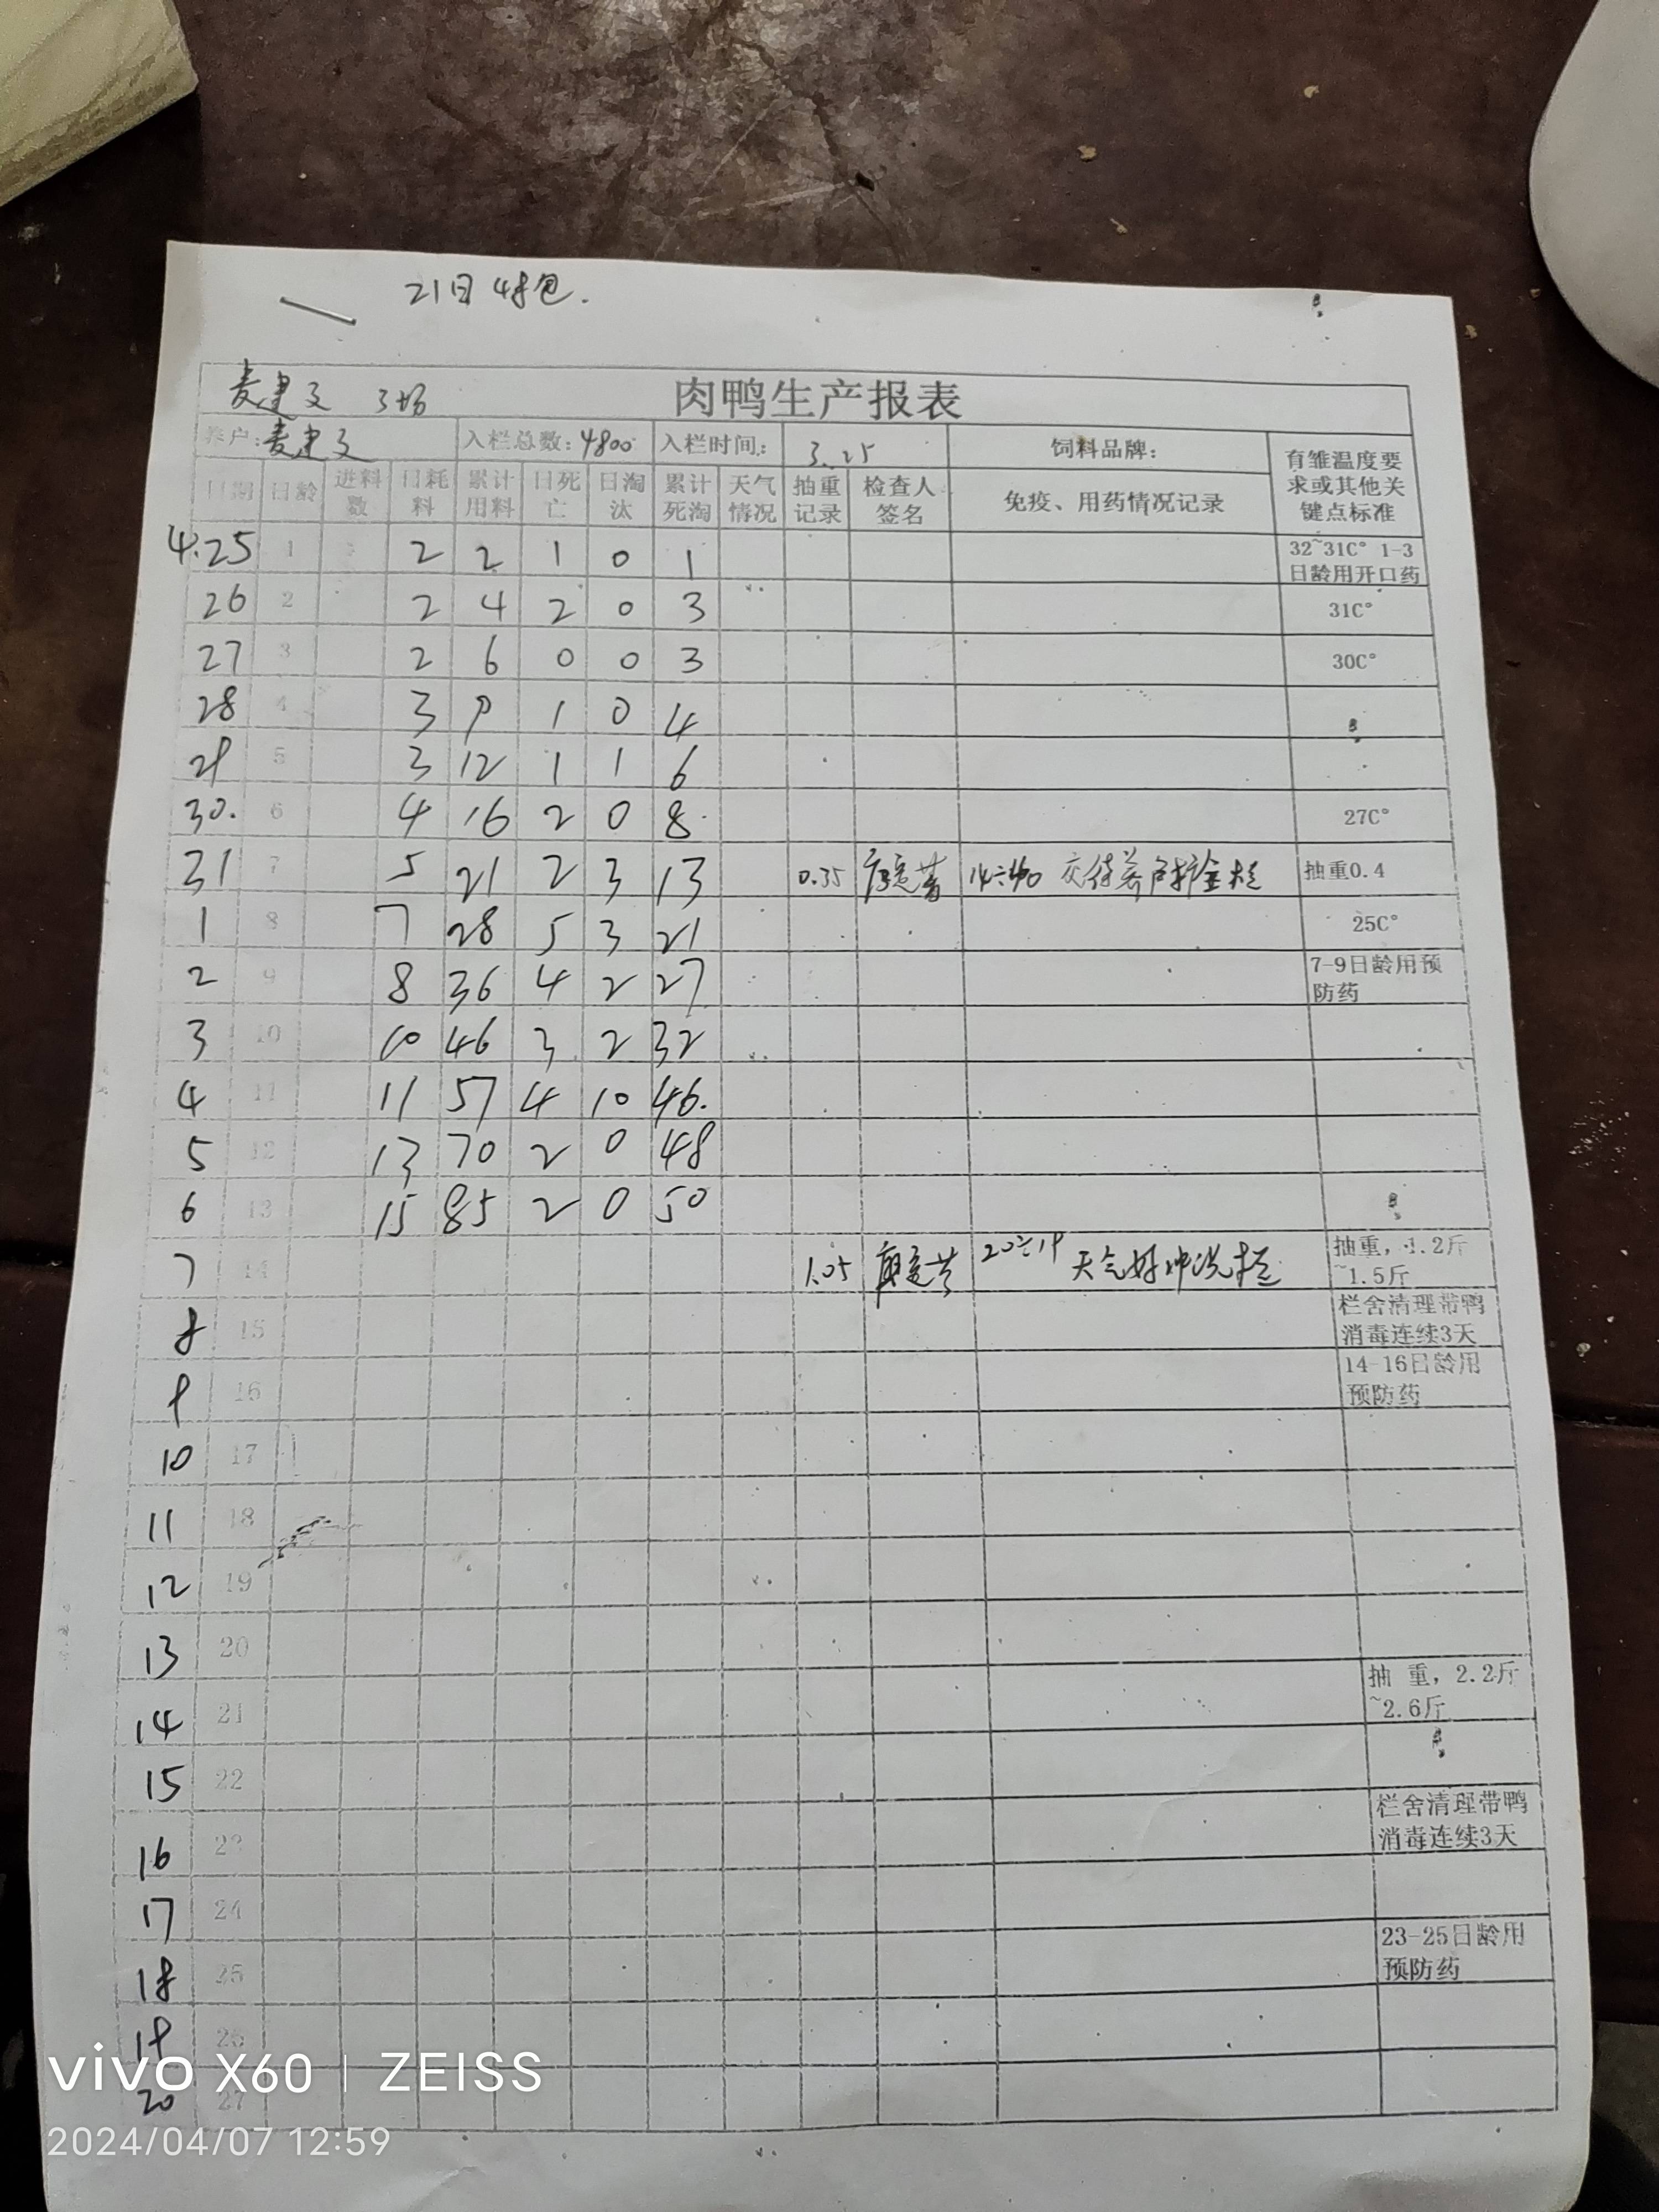 21日 48包.
麦建文 3场 肉鸭生产报表
养户:麦建文 入栏总数:4800 入栏时间: 3.25 饲料品牌: 育雏温度要求或其他关键点标准
日期 日龄 进料数 日耗料 累计用料 日死亡 日淘汰 累计死淘 天气情况 抽重记录 检查人签名 免疫、用药情况记录
4.25 1 2 2 1 0 1 32~31C° 1-3日龄用开口药
26 2 2 4 2 0 3 31C°
27 3 2 6 0 0 3 30C°
28 4 3 9 1 0 4
29 5 3 12 1 1 6
30. 6 4 16 2 0 8 27C°
31 7 5 21 2 3 13 0.35 14÷40 交待养户 抽重0.4
1 8 7 28 5 3 21 25C°
2 9 8 36 4 2 27 7-9日龄用预防药
3 10 10 46 3 2 32
4 11 11 57 4 10 46.
5 12 13 70 2 0 48
6 13 15 85 2 0 50
7 14 1.05 20÷19 天气好冲洗栏 抽重,1.2斤~1.5斤
8 15 栏舍清理带鸭消毒连续3天
9 16 14-16日龄用预防药
10 17
11 18
12 19
13 20
14 21 抽 重,2.2斤~2.6斤
15 22
16 23 栏舍清理带鸭消毒连续3天
17 24
18 25 23-25日龄用预防药
19 26
20 27
vivo X60 | ZEISS
2024/04/07 12:59